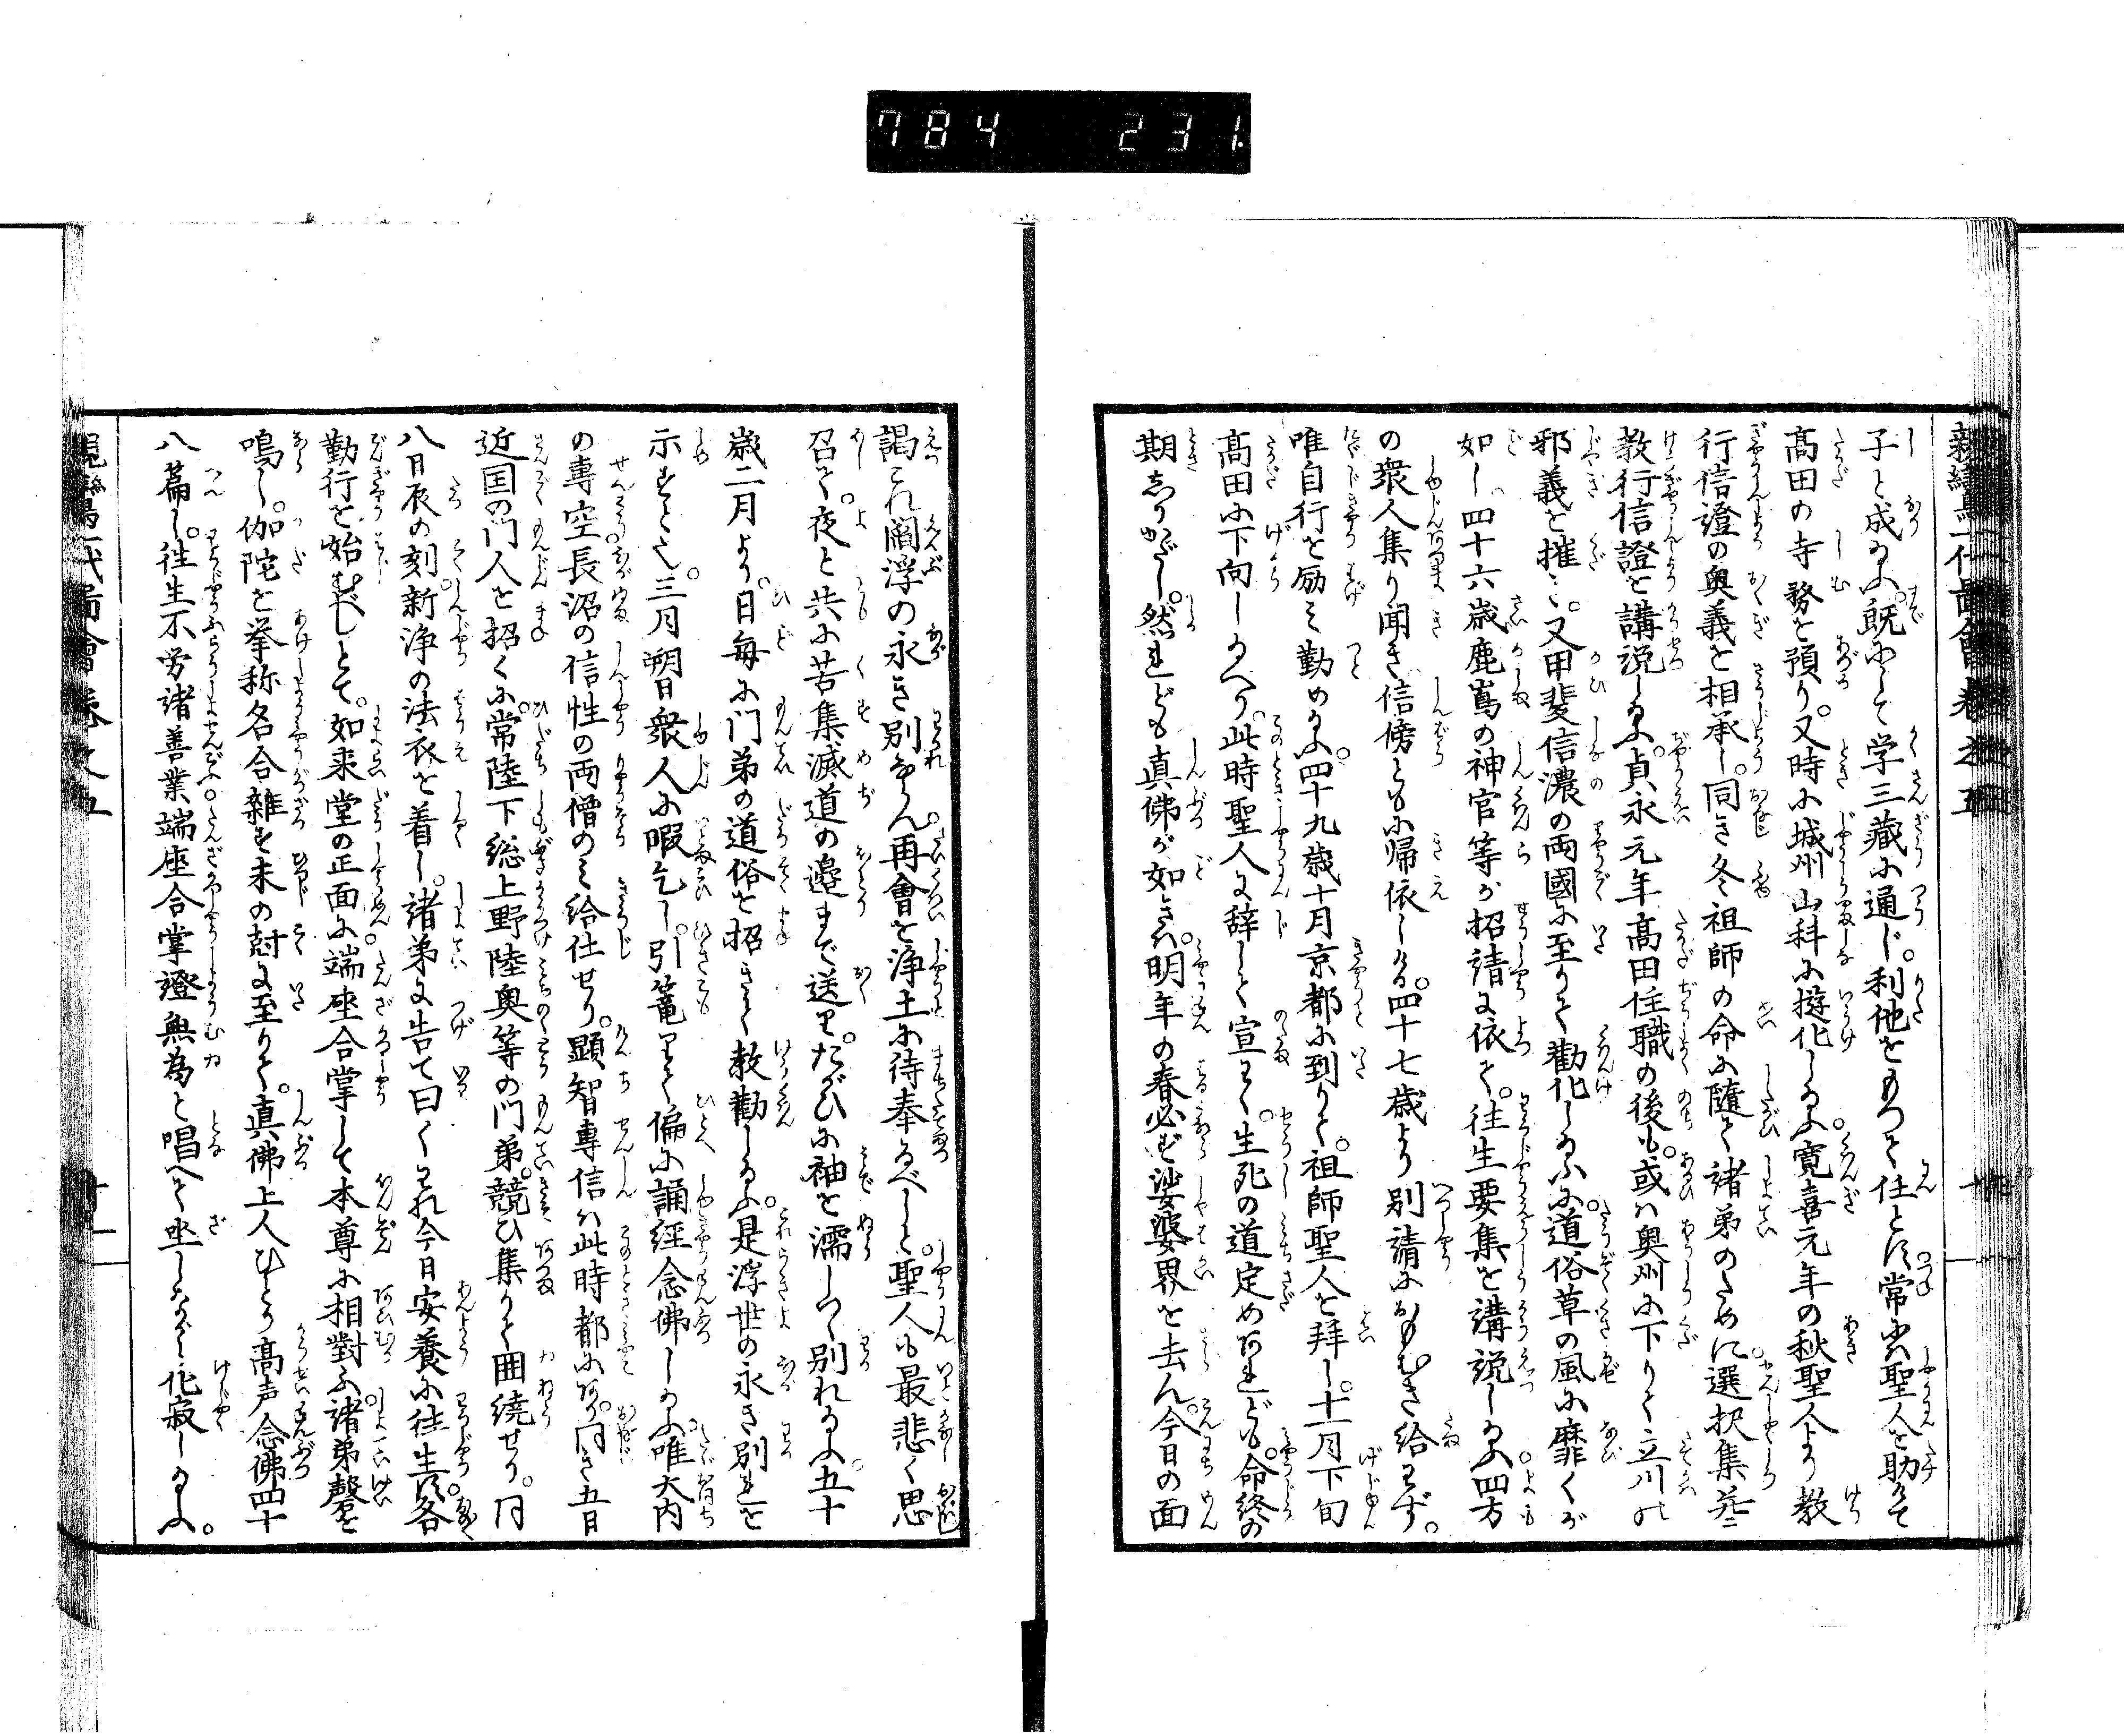 784 231.
親鸞聖人一代圖會 巻之五
子と成給ふ。既にして学三藏に通じ。利他をもつて任とす。常に聖人を助けて
髙田の寺務を預り。又時に城州山科に遊化し給ふ。寛喜元年の秋聖人より教
行信證の奥義を相承し。同き冬祖師の命に隨て諸弟のために選択集并ニ
教行信證を講説し給ふ。貞永元年髙田住職の後も。或ハ奥州に下りて立川の
邪義を摧ミ。又甲斐信濃の両國に至りて勸化し給ふに。道俗草の風に靡くが
如し。四十六歳鹿嶌の神官等が招請に依て。往生要集を講説し給ふ。四方
の衆人集り聞き信傍ともに帰依しける。四十七歳より別請におもむき給ハず。
唯自行を励ミ勤め給ふ。四十九歳十月京都に到りて。祖師聖人を拜し。十一月下旬
髙田に下向し給へり。此時聖人に辞して宣ハく。生死の道定めあれども。命終の
期しりがたし。然れども真佛が如きハ。明年の春必ず娑婆界を去ん。今日の面
謁これ閻浮の永き別ならん。再會を淨土に待奉るべしと。聖人も最悲く思
召て。夜と共に苦集滅道の邉まで送り。たがひに袖を濡しつゝ別れ給ふ。五十
歳二月より。日毎に门弟の道俗を招きて教勸し給ふ。是浮世の永き別れを
示すとて也。三月朔日衆人に暇乞し。引篭りて偏に誦經念佛し給ふ。唯大内
の専空長沼の信性の両僧のミ給仕せり。顕智専信ハ此時都にあり。同き五日
近国の门人を招くに。常陸下総上野陸奥等の门弟。競ひ集りて囲繞せり。同
八日辰の刻新淨の法衣を着し。諸弟に告て曰くわれ今日安養に往生す。各
勤行を始むべしとて。如来堂の正面に端座合掌して本尊に相對ふ。諸弟磬を
鳴し。伽陀を挙称名合雜す。未の尅に至りて。真佛上人ひとり髙声念佛四十
八篇し。往生不労諸善業端座合掌證無為と唱へて坐しながら化寂し給ふ。
親鸞聖人一代圖會 巻之五